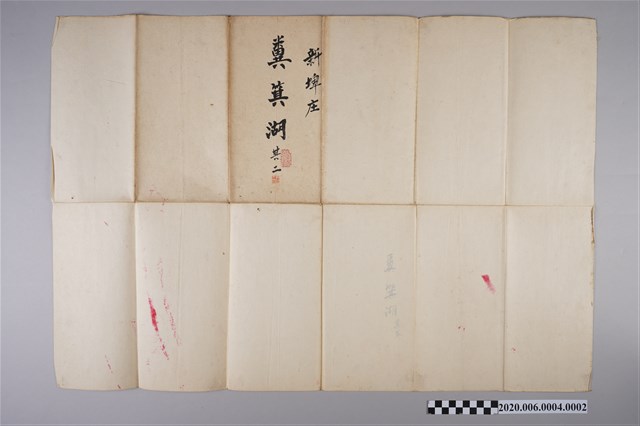 新埤庄
糞箕湖
其二
2020.006.0004.0002